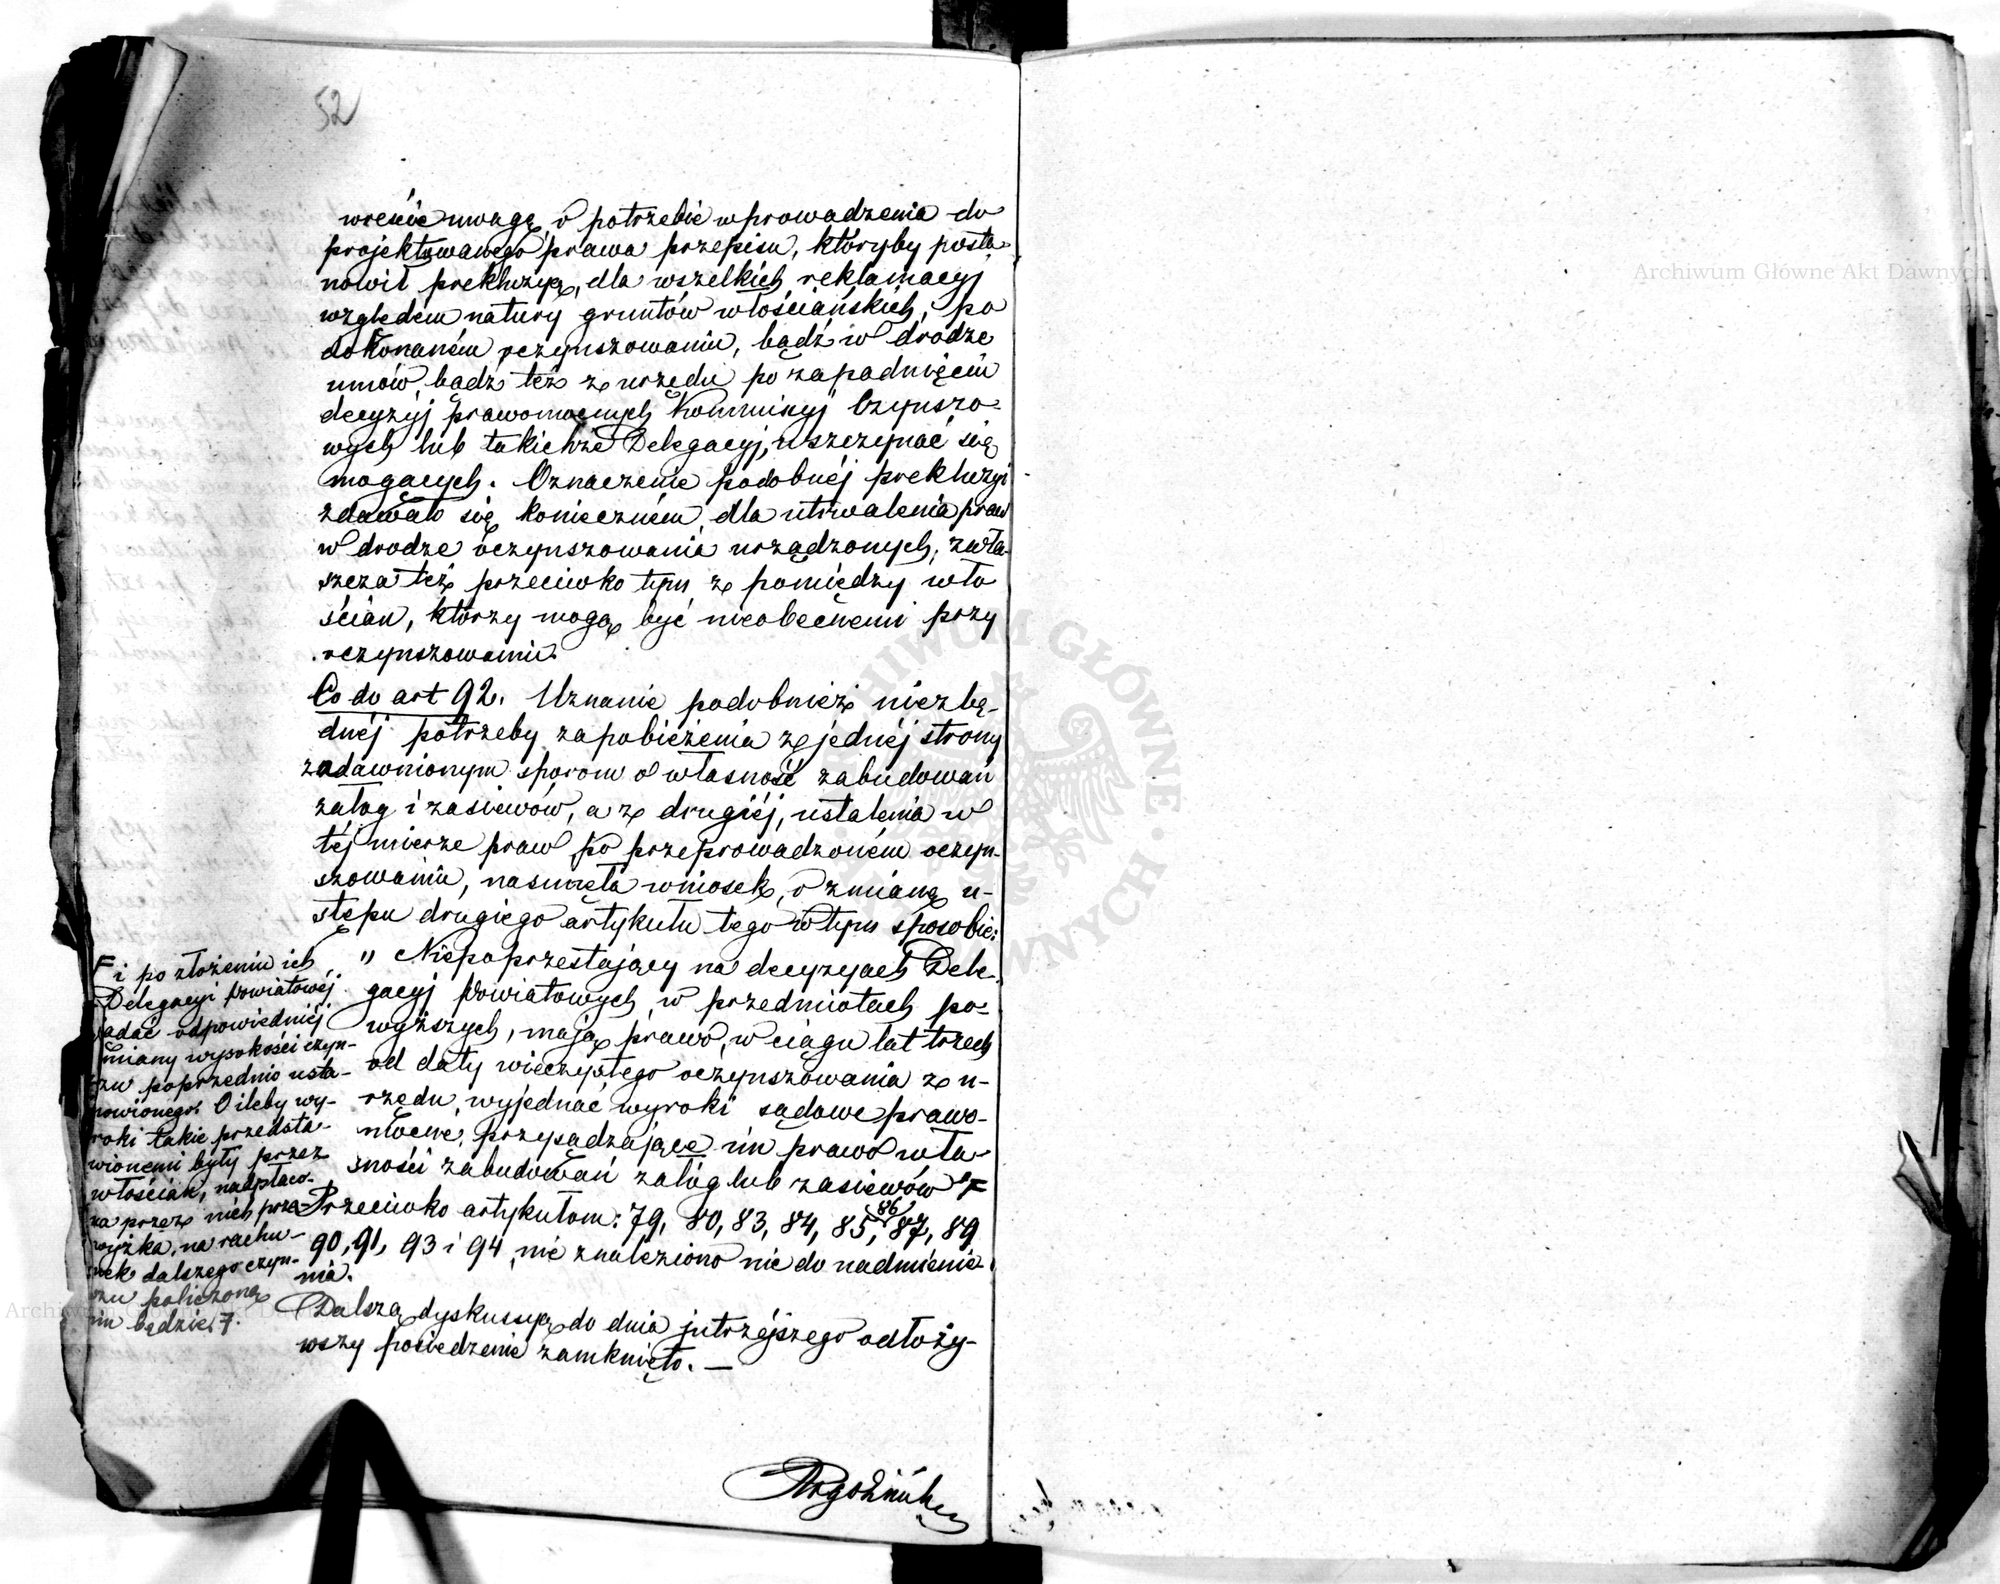 52
wreście uwagę o potrzebie wprowadzenia do
projektowanego prawa przepisu, któryby posta-
nowił prekluzyę, dla wszelkich reklamacyj
względem natury gruntów włościańskich, po
dokonaném oczynszowaniu, bądź w drodze
umów bądź też z urzędu po zapadnięciu
decyzyj prawomocnych Kommissyj Czynszo-
wych lub takichże Delegacyj, wszczynać się
mogących. Oznaczenie podobnéj prekluzyi
zdawało się konieczném, dla utrwalenia praw
w drodze oczynszowania urządzonych, zwła-
szcza też przeciwko tym z pomiędzy wło
ścian, którzy mogą być nieobecnemi przy
oczynszowaniu.
Co do art 92. Uznanie podobnież niezbę-
dnéj potrzeby zapobieżenia z jednéj strony
zadawnionym sporom o własność zabudowań
załog i zasiewów, a z drugiéj, ustalenia w
téj mierze praw po przeprowadzoném oczyn-
szowaniu, nasunęła wniosek, o zmianę u-
stępu drugiego artykułu tego w tym sposobie:
„ Niepoprzestający na decyzyach Dele-
gacyj Powiatowych w przedmiotach po-
wyższych, mają prawo, w ciągu lat trzech
od daty wieczystego oczynszowania z u-
rzędu, wyjednać wyroki sądowe prawo-
mocne, przysądzające im prawo wła-
sności zabudowań załóg lub zasiewów F
F i po złożeniu ich
Delegacyi Powiatowéj
żądać odpowiedniéj
zmiany wysokości czyn-
szu poprzednio usta-
nowionego. O ileby wy-
roki takie przedsta-
wionemi były przez
włościan, nadpłaco-
na przez nich prze-
wyżka, na rachu-
nek dalszego czyn-
szu policzoną
im będzie. F.
Przeciwko artykułom: 79, 80, 83, 84, 85, 86, 87, 89
90, 91, 93 i 94, nie znaleziono nic do nadmienie-
nia.
Dalszą dyskussyę do dnia jutrzejszego odłoży-
wszy posiedzenie zamknięto. —
Archiwum Główne Akt Dawnych